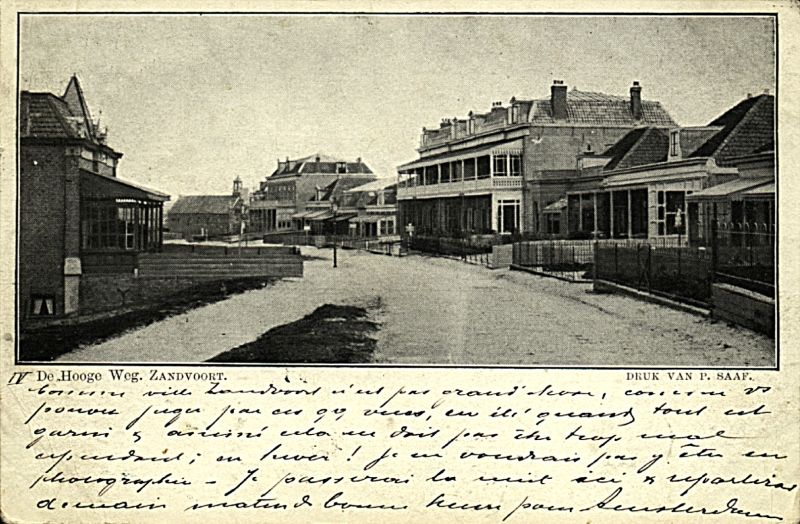 IV De Hooge Weg. Zandvoort.
DRUK VAN P. SAAF.
Comme ville Zandvoort n'est pas grand'chose, comme vs
pouvez juger par ces qq vues, en été quand tout est
garni & animé cela ne doit pas être trop mal
cependant; en hiver! je ne voudrais pas y être en
photographie - Je passerai la nuit ici & repartirai
demain matin de bonne heure pour Amsterdam